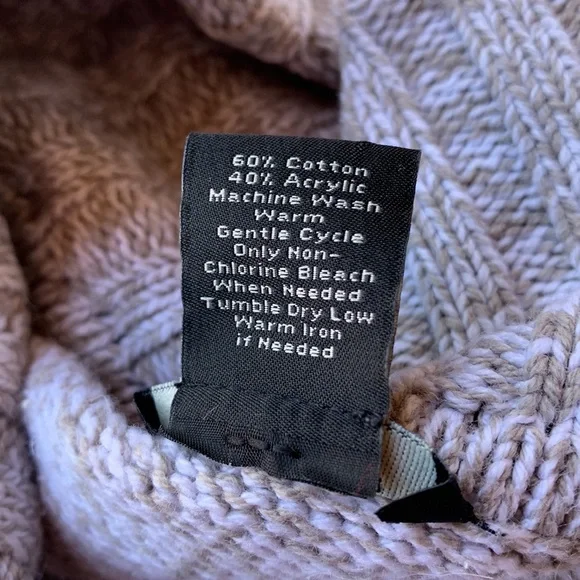 60% Cotton
40% Acrylic
Machine Wash
Warm
Gentle Cycle
Only Non-
Chlorine Bleach
When Needed
Tumble Dry Low
Warm Iron
if Needed